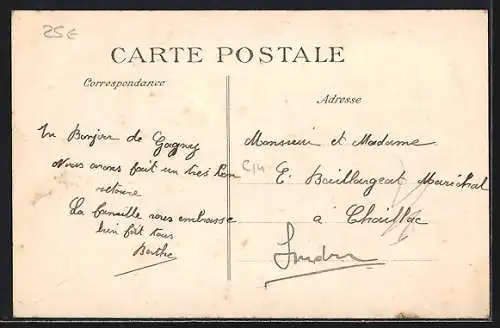 25€
CARTE POSTALE
Correspondance
Adresse
Un Bonjour de Gagny
Nous avons fait un très bon
retoure
La famille vous embrasse
bien fort tous
Berthe
C/14
Monsieur et Madame
E. Baillargeat Maréchal
a Chaillac
Indre